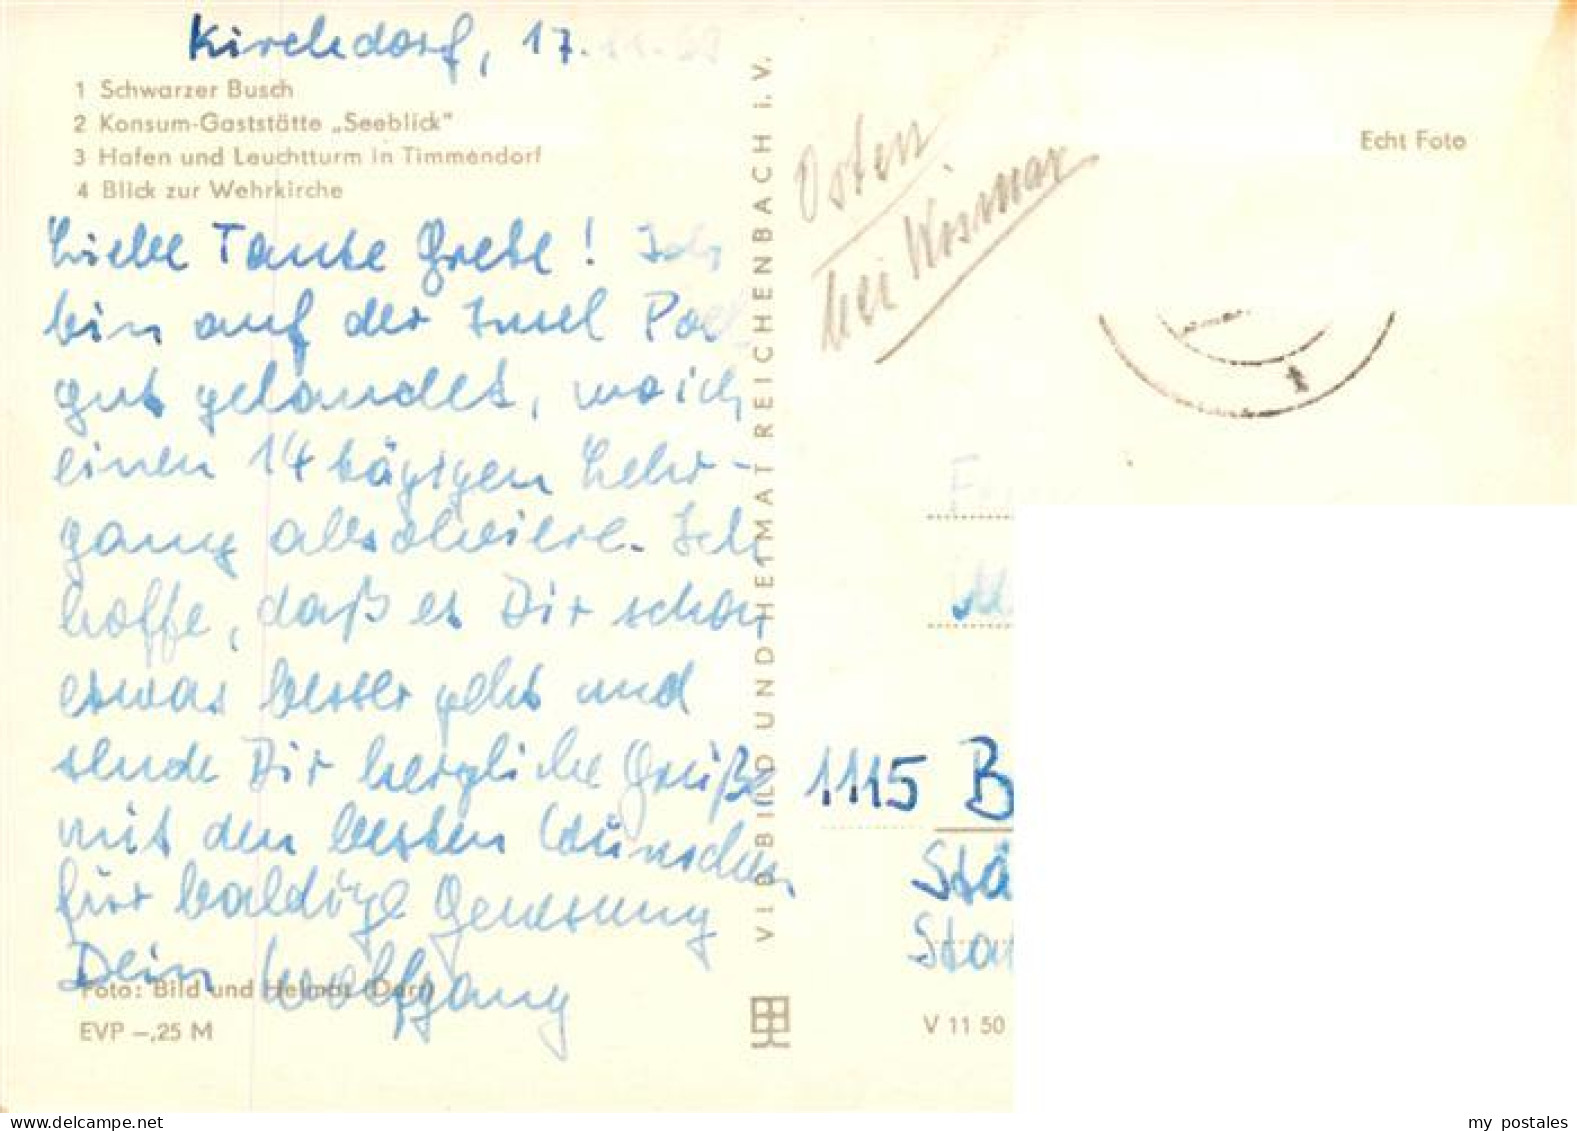 Kirchdorf, 17.
1 Schwarzer Busch
2 Konsum-Gaststätte „Seeblick"
3 Hafen und Leuchtturm in Timmendorf
4 Blick zur Wehrkirche
Liebe Tante Grete! Ich
bin auf der Insel Poel
gut gelandet, wo ich
einen 14 tägigen Lehr-
gang absolviere. Ich
hoffe, daß es Dir schon
etwas besser geht und
sende Dir herzliche Grüße
mit den besten Wünschen
für baldige Genesung
Dein Wolfgang
Foto: Bild und Heimat (Darr)
EVP –,25 M
VEB BILD UND HEIMAT REICHENBACH i. V.
Osten
bei Wismar
Echt Foto
1115 B
Stä
Sta
V 11 50
my postales